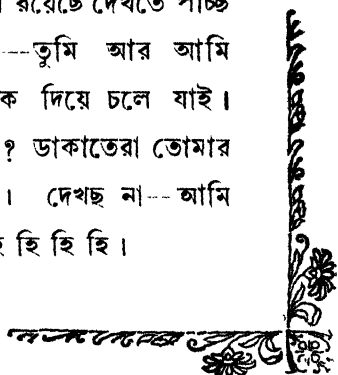 রয়েছে দেখতে পাচ্ছ
---তুমি আর আমি
ক দিয়ে চলে যাই।
? ডাকাতেরা তোমার
। দেখছ না-- আমি
হি হি হি।